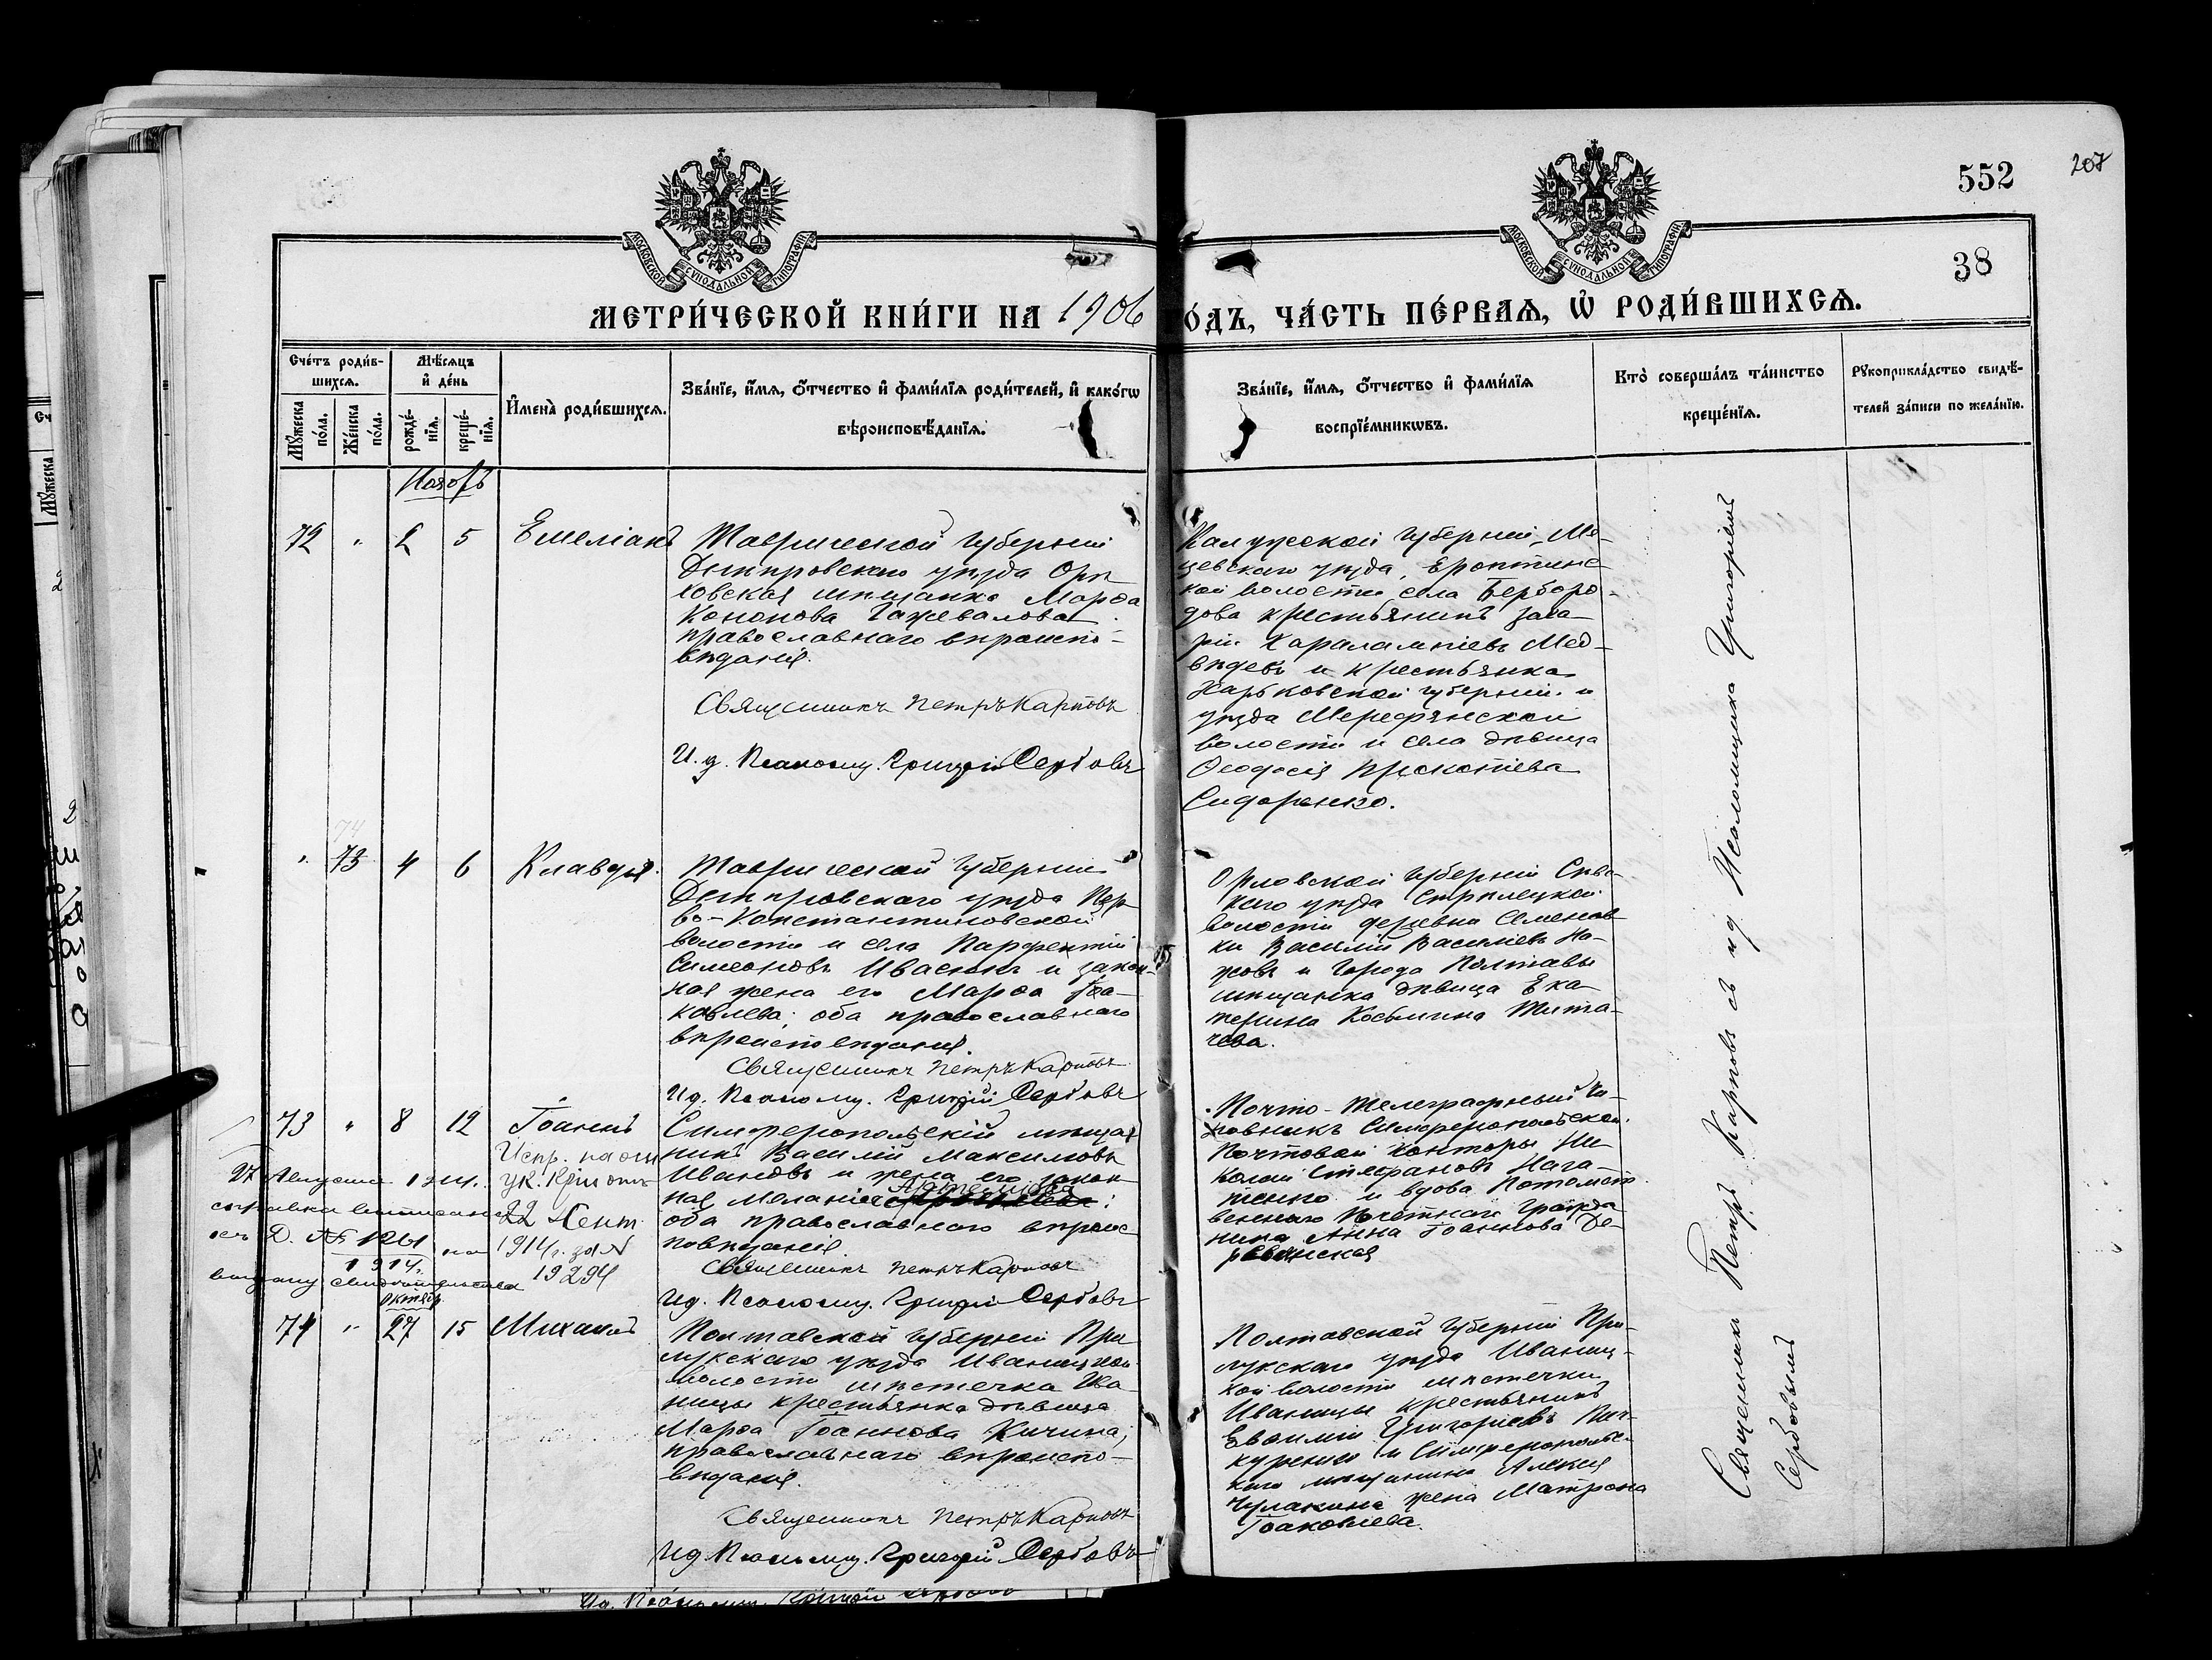 552
207
38
МОСКОВСКОЙ СѴНОДАЛЬНОЙ ТИПОГРАФІИ
МОСКОВСКОЙ СѴНОДАЛЬНОЙ ТИПОГРАФІИ
МЕТРИ́ЧЕСКОЙ КНИ́ГИ НА 1906
О́ДЪ, ЧА́СТЬ ПЕ́РВАѦ, Ѡ҆ РОДИ́ВШИХСѦ.
Сче́тъ роди́в-
шихсѧ.
Мꙋ́жеска по́ла.
Же́нска по́ла.
Мѣ́сѧцъ
и҆ де́нь
рожде́-
нїѧ.
креще́-
нїѧ.
И҆мена̀ роди́вшихсѧ.
Зва́нїе, и҆́мѧ, ѻ҆́тчество и҆ фами́лїѧ роди́телей, и҆ како́гѡ
вѣроисповѣ́данїѧ.
Зва́нїе, и҆́мѧ, ѻ҆́тчество и҆ фами́лїѧ
воспрїе́мникѡвъ.
Кто̀ соверша́лъ та́инство
креще́нїѧ.
Рꙋкоприкла́дство свидѣ́-
телей за́писи по жела́нїю.
Ноябрь
72 " 2 5 Емеліанъ
Таврической губерніи
Днѣпровскаго уѣзда Орѣ-
ховская мѣщанка Марѳа
Кононова
православнаго вѣроиспо-
вѣданія.
Священникъ Петръ Карповъ
И. д. Псаломщ. Григорій Сербовъ
Калужской губерніи, Ме-
щевскаго уѣзда,
кой волости села
дова крестьянинъ Заха-
рій Харалампіевъ Мед-
вѣдевъ и крестьянка
Харьковской губерніи и
уѣзда Мерефянской
волости и села дѣвица
Ѳеодосія Прокопіева
Сидоренко.
74
" 73 4 6 Клавдія.
Таврической губерніи
Днѣпровскаго уѣзда Пер-
во-Константиновской
волости и села Парфентій
Симеоновъ Ивасюкъ и закон-
ная жена его Марѳа Іоа-
ковлева; оба православнаго
вѣроисповѣданія.
Священникъ Петръ Карповъ
И д. Псаломщ. Григорій Сербовъ
Орловской губерніи Сѣвс-
каго уѣзда Стрѣлецкой
волости деревни Семенов-
ки Василій Василіевъ
и города Полтавы
мѣщанка дѣвица Ека-
терина Космина
чева.
73 " 8 12 Іоаннъ
Испр. на осн.
ук. Крым.
22 Сент.
1914 г. за №
19294
27 Августа 1914.
справки выписано
Д. № 1261
1914 г. на
выдачу свидѣтельства
Симферопольскій мѣща-
нинъ Василій Максимовъ
Ивановъ и жена его закон-
ная Меланія Артемьева:
оба православнаго вѣрои-
повѣданія.
Священникъ Петръ Карповъ
И д. Псаломщ. Григорій Сербовъ
Почто-телеграфный чи-
новникъ Симферопольской
Почтовой конторы Ни-
колай Стефановъ Нага-
и вдова Потомст-
веннаго Почетнаго Гражда-
нина Анна Іоаннова Де-
Октябр.
74 " 27 15 Михаилъ
Полтавской губерніи При-
лукскаго уѣзда Иваницкой
волости мѣстечка Ива-
ницы крестьянка дѣвица
Марѳа Іоаннова Кичина;
православнаго вѣроиспо-
вѣданія.
Священникъ Петръ Карповъ
И д Псаломщ. Григорій Сербовъ
Полтавской губерніи При-
лукскаго уѣзда Иваниц-
кой волости мѣстечки
Иваницы крестьянинъ
Евѳимій Григоріевъ
и Симферопольс-
каго мѣщанина Алексія
жена Матрона
Іоаковлева.
Священникъ Петръ Карповъ съ и д. Псаломщика Григоріемъ
Сербовымъ